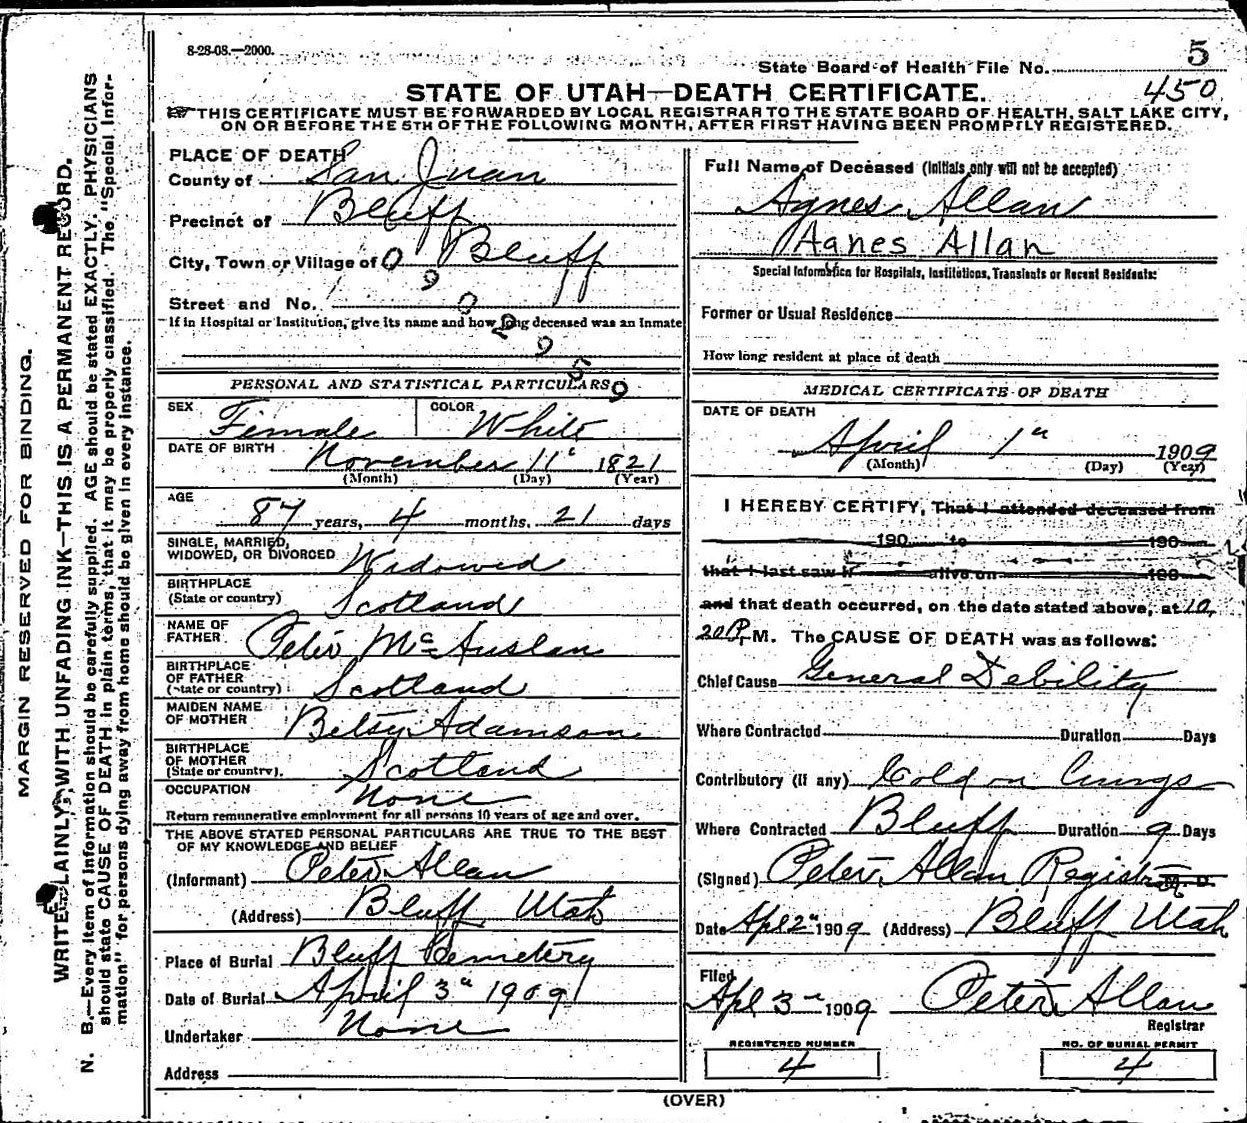 8-28-08.—2000.
5
State Board of Health File No.
450
STATE OF UTAH—DEATH CERTIFICATE.
THIS CERTIFICATE MUST BE FORWARDED BY LOCAL REGISTRAR TO THE STATE BOARD OF HEALTH, SALT LAKE CITY,
ON OR BEFORE THE 5TH OF THE FOLLOWING MONTH, AFTER FIRST HAVING BEEN PROMPTLY REGISTERED.
MARGIN RESERVED FOR BINDING.
WRITE PLAINLY, WITH UNFADING INK—THIS IS A PERMANENT RECORD.
N. B.—Every item of information should be carefully supplied. AGE should be stated EXACTLY. PHYSICIANS
should state CAUSE OF DEATH in plain terms, that it may be properly classified. The "Special Infor-
mation" for persons dying away from home should be given in every instance.
PLACE OF DEATH
County of San Juan
Precinct of Bluff
City, Town or Village of Bluff
0 9 0 2 9 5 9
Street and No.
If in Hospital or Institution, give its name and how long deceased was an Inmate
PERSONAL AND STATISTICAL PARTICULARS
SEX Female COLOR White
DATE OF BIRTH November 11" 1821
(Month) (Day) (Year)
AGE
87 years, 4 months, 21 days
SINGLE, MARRIED,
WIDOWED, OR DIVORCED Widowed
BIRTHPLACE
(State or country) Scotland
NAME OF
FATHER Peter McAuslan
BIRTHPLACE
OF FATHER
(State or country) Scotland
MAIDEN NAME
OF MOTHER Betsy Adamson
BIRTHPLACE
OF MOTHER
(State or country). Scotland
OCCUPATION None
Return remunerative employment for all persons 10 years of age and over.
THE ABOVE STATED PERSONAL PARTICULARS ARE TRUE TO THE BEST
OF MY KNOWLEDGE AND BELIEF
(Informant) Peter Allan
(Address) Bluff Utah
Place of Burial Bluff Cemetery
Date of Burial April 3" 1909
Undertaker None
Address
Full Name of Deceased (Initials only will not be accepted)
Agnes Allan
Agnes Allan
Special Information for Hospitals, Institutions, Transients or Recent Residents:
Former or Usual Residence
How long resident at place of death
MEDICAL CERTIFICATE OF DEATH
DATE OF DEATH
April 1" 1909
(Month) (Day) (Year)
I HEREBY CERTIFY, That I attended deceased from
190 to 190
that I last saw h alive on 190
and that death occurred, on the date stated above, at 10,
20 P. M. The CAUSE OF DEATH was as follows:
Chief Cause General Debility
Where Contracted Duration Days
Contributory (if any) Cold on Lungs
Where Contracted Bluff Duration 9 Days
(Signed) Peter Allan Registrar M. D.
Date Apl 2" 1909 (Address) Bluff Utah
Filed
Apl 3" 1909 Peter Allan
Registrar
REGISTERED NUMBER
4
NO. OF BURIAL PERMIT
4
(OVER)